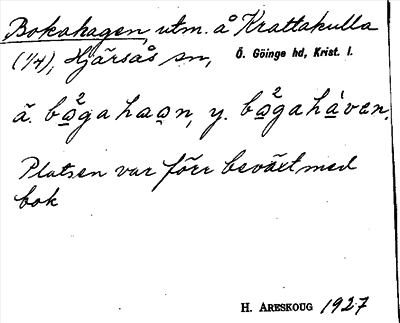 Bokahagen, utm. å Krattakulla
(1/4), Hjärsås sn, Ö. Göinge hd, Krist. l.
ä. bo²gahaan, y. bo²gahàven.
Platsen var förr beväxt med
bok
H. ARESKOUG 1927